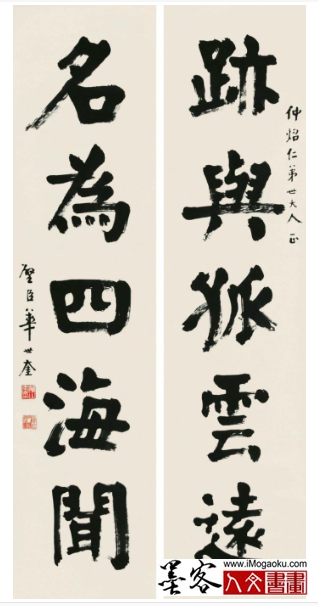 仲焰仁弟世大人正
跡與孤雲遠
名為四海聞
璧臣華世奎
墨客
www.iMogaoku.com
人文書畫